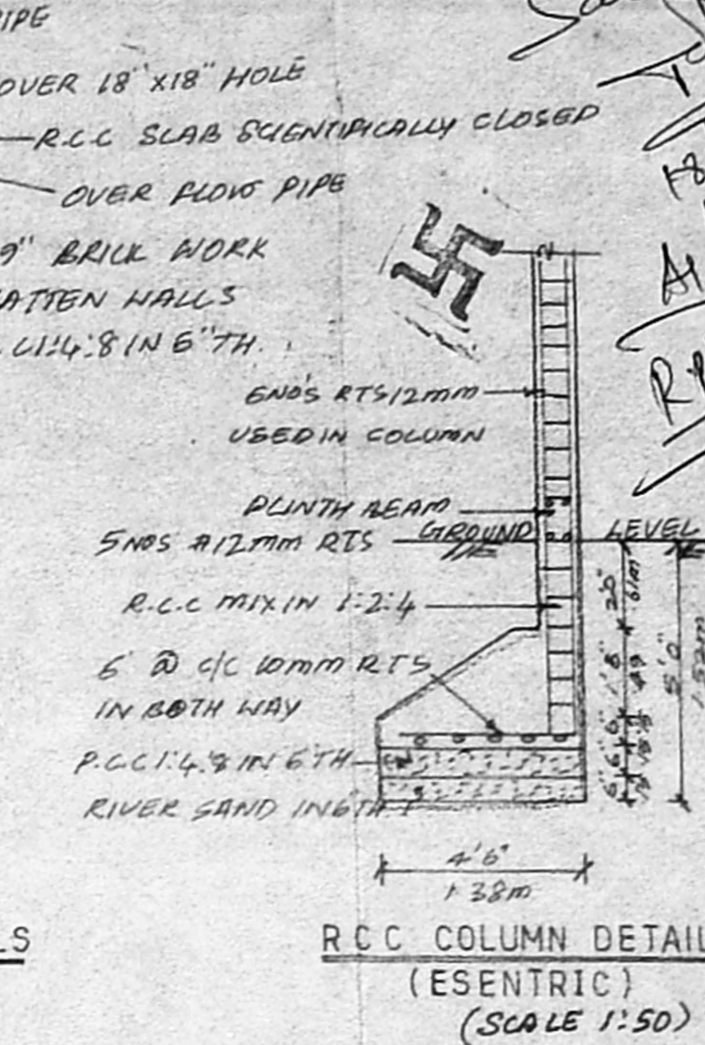 PIPE
OVER 18"X18" HOLE
R.C.C SLAB SCIENTIFICALLY CLOSED
OVER FLOW PIPE
9" BRICK WORK
ATTEN WALLS
C1:4:8 IN 6"TH.
6NO'S RTS12MM
USED IN COLUMN
PLINTH BEAM
5NOS #12MM RTS
GROUND LEVEL
R.C.C MIX IN 1:2:4
6" @ C/C 10MM RTS
IN BOTH WAY
P.C.C 1:4:8 IN 6"TH
RIVER SAND IN 6"TH
2'0"
61M
1'8"
6"
6"
6"
5'0"
1.52m
4'6"
1.38m
LS
RCC COLUMN DETAIL
(ESENTRIC)
(SCALE 1:50)